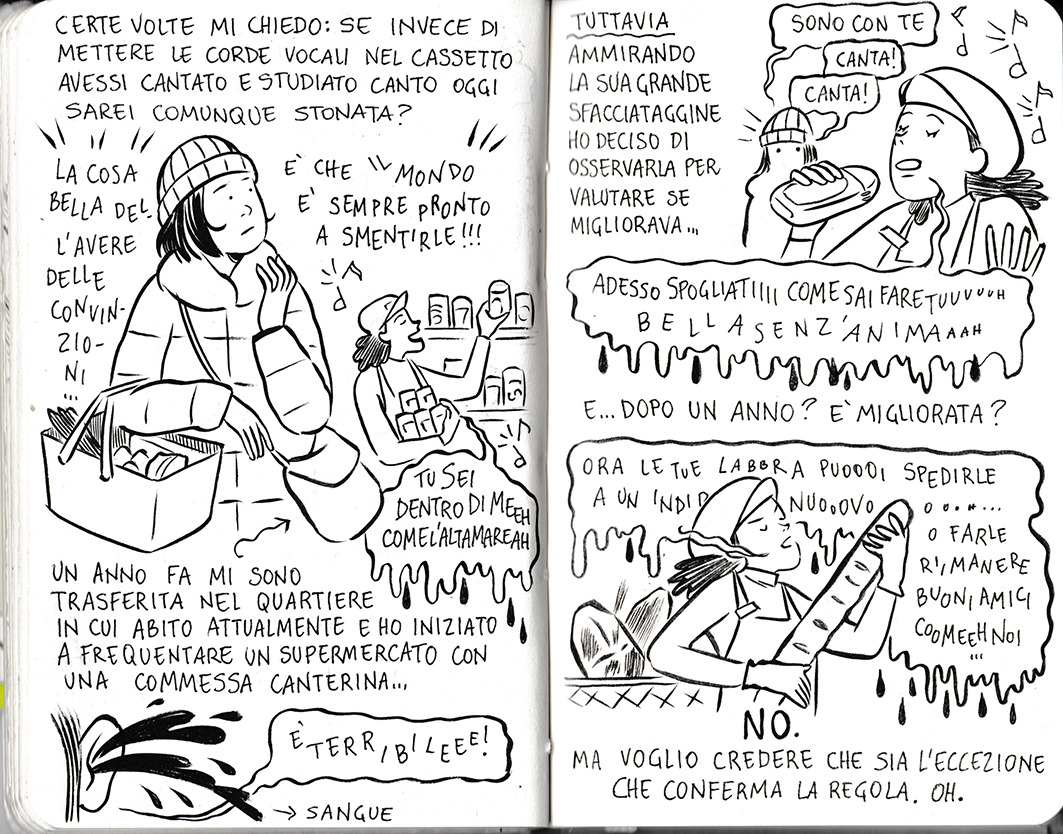 CERTE VOLTE MI CHIEDO: SE INVECE DI
METTERE LE CORDE VOCALI NEL CASSETTO
AVESSI CANTATO E STUDIATO CANTO OGGI
SAREI COMUNQUE STONATA?
LA COSA
BELLA DEL
L'AVERE
DELLE
CONVIN-
ZIO-
NI
...
E' CHE IL MONDO
E' SEMPRE PRONTO
A SMENTIRLE!!!
TU SEI
DENTRO DI MEEH
COME L'ALTA MAREAH
UN ANNO FA MI SONO
TRASFERITA NEL QUARTIERE
IN CUI ABITO ATTUALMENTE E HO INIZIATO
A FREQUENTARE UN SUPERMERCATO CON
UNA COMMESSA CANTERINA...
È TERRIBILEEE!
→ SANGUE
TUTTAVIA
AMMIRANDO
LA SUA GRANDE
SFACCIATAGGINE
HO DECISO DI
OSSERVARLA PER
VALUTARE SE
MIGLIORAVA...
SONO CON TE
CANTA!
CANTA!
ADESSO SPOGLIATIIII COME SAI FARE TUUUUUH
BELLA SENZ'ANIMAAAH
E... DOPO UN ANNO? E' MIGLIORATA?
ORA LE TUE LABBRA PUOOOI SPEDIRLE
A UN INDIR NUOOOVO
O FARLE
RIMANERE
BUONI AMICI
COOMEEH NOI
...
NO.
MA VOGLIO CREDERE CHE SIA L'ECCEZIONE
CHE CONFERMA LA REGOLA. OH.